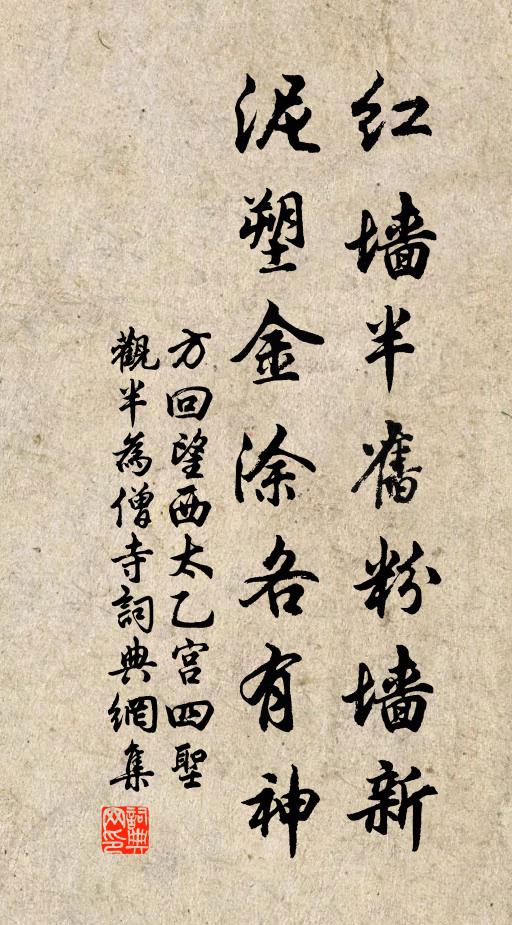 红墙半舊粉墙新
泥塑金涂各有神
方回望西太乙宫四聖
觀半為僧寺詞典網集
詞典网印